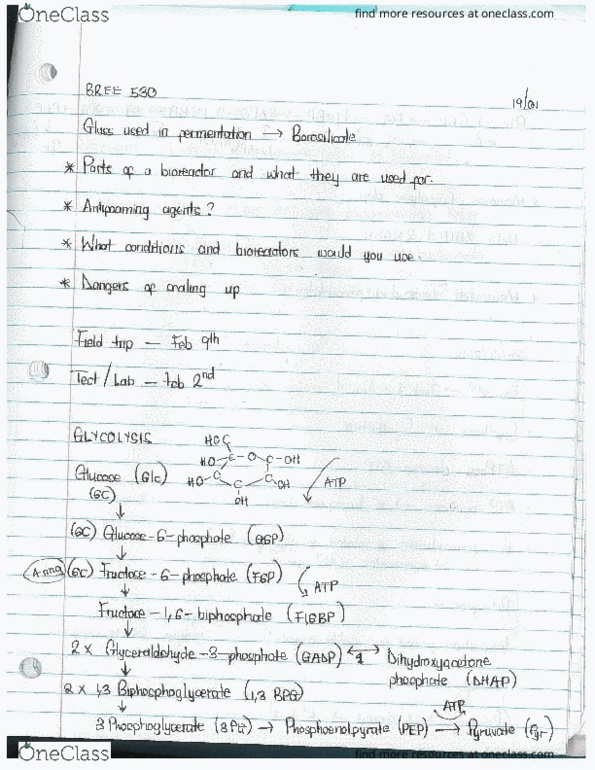 OneClass
find more resources at oneclass.com
BREE 530
19/01
Glass used in fermentation → Borosilicate
* Parts of a bioreactor and what they are used for.
* Antifoaming agents?
* What conditions and bioreactors would you use
* Dangers of scaling up
Field trip — Feb 9th
Test/Lab — Feb 2nd
GLYCOLYSIS
HOC
HO C O C OH
Glucose (Glc)
HO C C OH
ATP
(6C)
C
OH
(6C) Glucose-6-phosphate (G6P)
(6C) Fructose-6-phosphate (F6P)
ATP
Fructose-1,6-biphosphate (F16BP)
2 x Glyceraldehyde-3-phosphate (GADP) ↔ Dihydroxyacetone
phosphate (DHAP)
2 x 1,3 Biphosphoglycerate (1,3 BPG)
ATP
3 Phosphoglycerate → Phosphoenolpyrate (PEP) → Pyruvate (Pyr)
OneClass
find more resources at oneclass.com